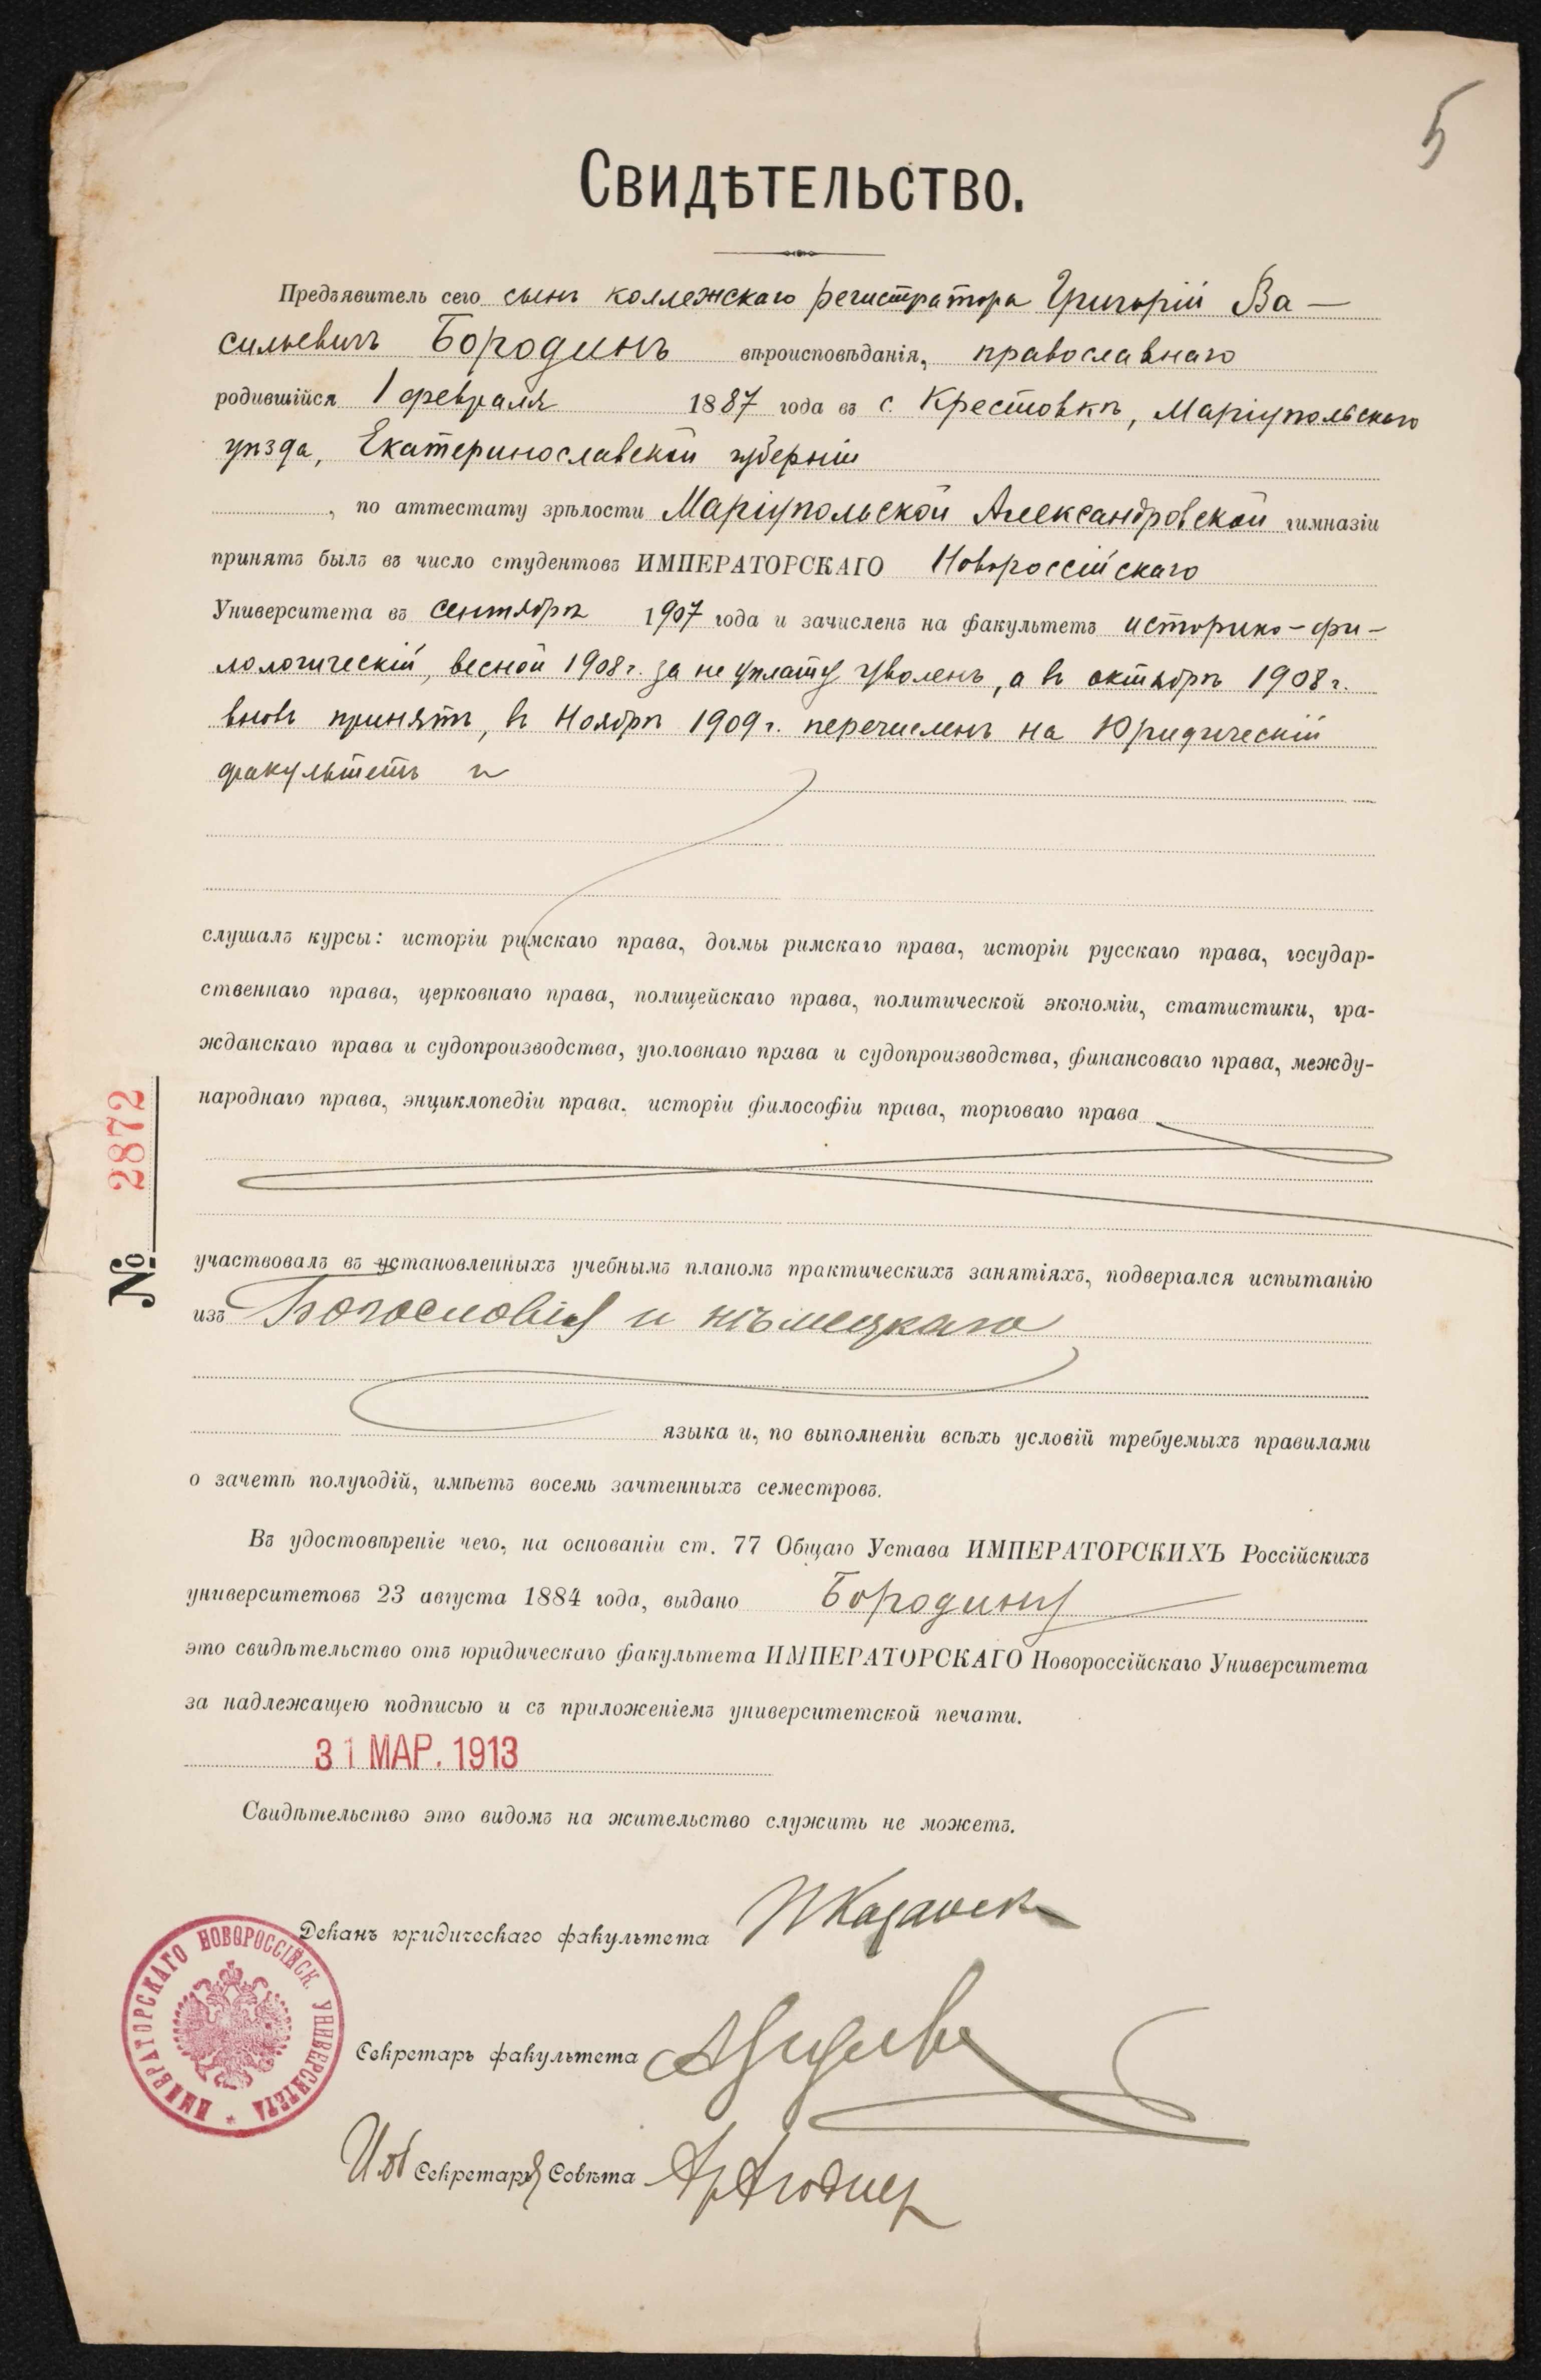 5
Свидѣтельство.
Предъявитель сего сынъ коллежскаго регистратора Григорій Ва-
сильевичъ Бородинъ вѣроисповѣданія, православнаго
родившійся 1 февраля 1887 года въ с. Крестовкѣ, Маріупольскаго
уѣзда, Екатеринославской губерніи
, по аттестату зрѣлости Маріупольской Александровской гимназіи
принятъ былъ въ число студентовъ ИМПЕРАТОРСКАГО Новороссійскаго
Университета въ сентябрѣ 1907 года и зачисленъ на факультетъ историко-фи-
лологическій, весной 1908 г. за не уплату уволенъ, а въ октябрѣ 1908 г.
вновь принятъ, въ Ноябрѣ 1909 г. перечисленъ на Юридическій
факультетъ и
слушалъ курсы: исторіи римскаго права, догмы римскаго права, исторіи русскаго права, государ-
ственнаго права, церковнаго права, полицейскаго права, политической экономіи, статистики, гра-
жданскаго права и судопроизводства, уголовнаго права и судопроизводства, финансоваго права, между-
народнаго права, энциклопедіи права, исторіи философіи права, торговаго права
№ 2872
участвовалъ въ установленныхъ учебнымъ планомъ практическихъ занятіяхъ, подвергался испытанію
изъ Богословія и нѣмецкаго
языка и, по выполненіи всѣхъ условій требуемыхъ правилами
о зачетѣ полугодій, имѣетъ восемь зачтенныхъ семестровъ.
Въ удостовѣреніе чего, на основаніи ст. 77 Общаго Устава ИМПЕРАТОРСКИХЪ Россійскихъ
университетовъ 23 августа 1884 года, выдано Бородину
это свидѣтельство отъ юридическаго факультета ИМПЕРАТОРСКАГО Новороссійскаго Университета
за надлежащею подписью и съ приложеніемъ университетской печати.
31 МАР. 1913
Свидѣтельство это видомъ на жительство служить не можетъ.
Деканъ юридическаго факультета
ИМПЕРАТОРСКАГО НОВОРОССІЙСК. УНИВЕРСИТЕТА *
Секретарь факультета
Секретаря Совѣта